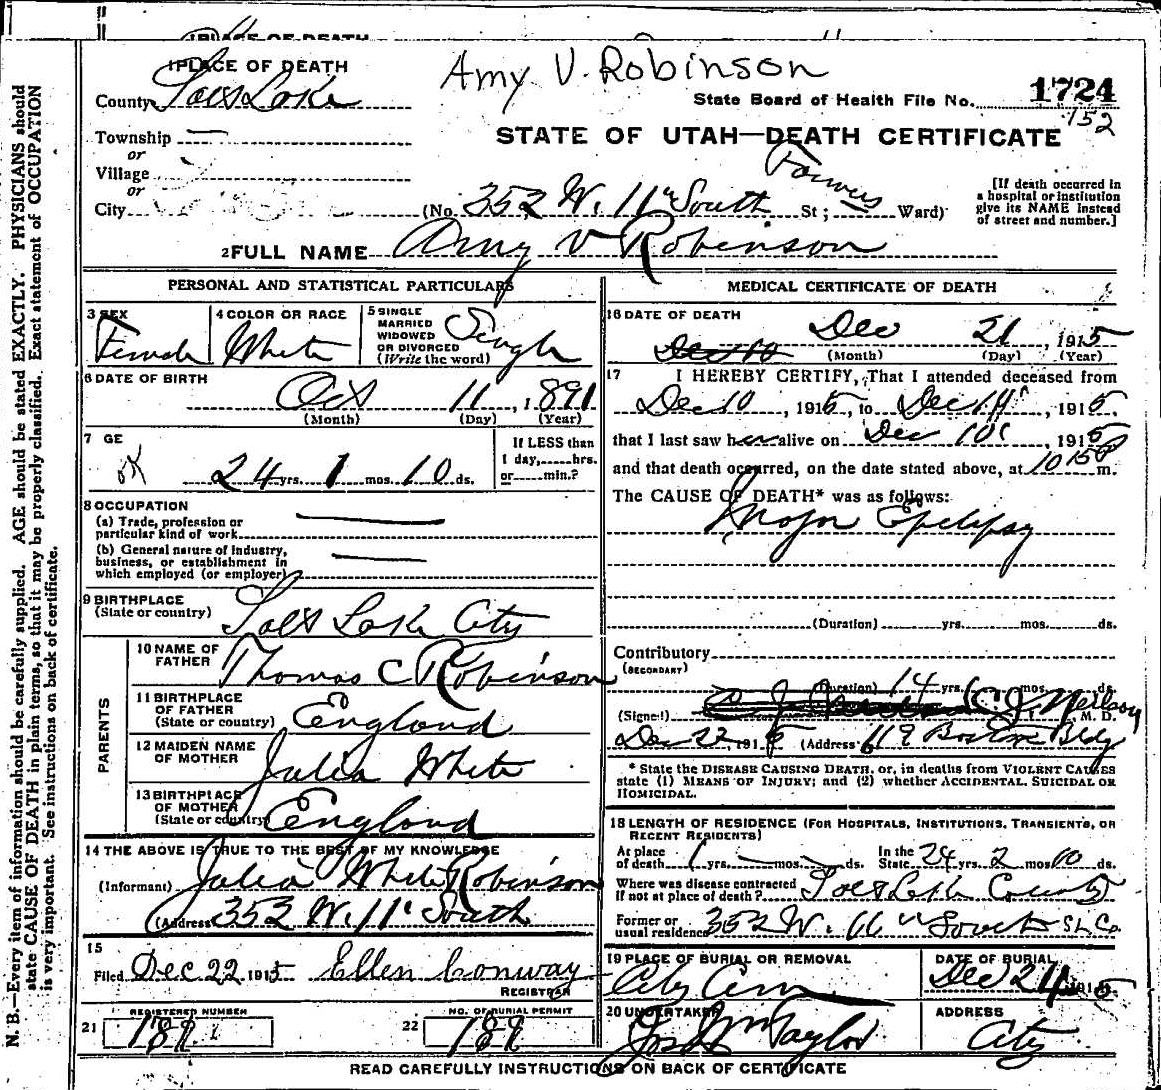 PLACE OF DEATH
1 PLACE OF DEATH
Amy V. Robinson
County Salt Lake
State Board of Health File No. 1724
152
Township
or
STATE OF UTAH—DEATH CERTIFICATE
Village
or
City
(No. 352 W. 11" South St; Ward)
[If death occurred in
a hospital or institution
give its NAME instead
of street and number.]
2 FULL NAME Amy V Robinson
PERSONAL AND STATISTICAL PARTICULARS
3 SEX
Female
4 COLOR OR RACE
White
5 SINGLE
MARRIED
WIDOWED
OR DIVORCED
(Write the word)
Single
6 DATE OF BIRTH
Oct 11, 1891
(Month) (Day) (Year)
7 GE
OK
24 yrs. 1 mos. 10 ds.
If LESS than
1 day,.....hrs.
or.....min.?
8 OCCUPATION
(a) Trade, profession or
particular kind of work
(b) General nature of industry,
business, or establishment in
which employed (or employer)
9 BIRTHPLACE
(State or country)
Salt Lake City
PARENTS
10 NAME OF
FATHER
Thomas C Robinson
11 BIRTHPLACE
OF FATHER
(State or country)
England
12 MAIDEN NAME
OF MOTHER
Julia White
13 BIRTHPLACE
OF MOTHER
(State or country)
England
14 THE ABOVE IS TRUE TO THE BEST OF MY KNOWLEDGE
(Informant) Julia White Robinson
(Address 352 W. 11" South
15
Filed Dec 22 1915 Ellen Conway
REGISTRAR
REGISTERED NUMBER
21 189
NO. OF BURIAL PERMIT
22 189
MEDICAL CERTIFICATE OF DEATH
16 DATE OF DEATH
Dec 21, 1915
Dec 10
(Month) (Day) (Year)
17 I HEREBY CERTIFY, That I attended deceased from
Dec 10, 1915, to Dec 19", 1915,
that I last saw her alive on Dec 10", 1915
and that death occurred, on the date stated above, at 10 15 P m.
The CAUSE OF DEATH* was as follows:
Major Epilepsy
(Duration) yrs. mos. ds.
Contributory
(SECONDARY)
(Duration) 14 yrs. mos. ds.
(Signed) C J Neilson M. D.
Dec 22, 1915 (Address 619 Boston Bldg
* State the DISEASE CAUSING DEATH, or, in deaths from VIOLENT CAUSES
state (1) MEANS OF INJURY; and (2) whether ACCIDENTAL, SUICIDAL OR
HOMICIDAL.
18 LENGTH OF RESIDENCE (FOR HOSPITALS, INSTITUTIONS, TRANSIENTS, OR
RECENT RESIDENTS)
At place
of death 1 yrs. — mos. — ds.
In the
State 24 yrs. 2 mos 10 ds.
Where was disease contracted
if not at place of death? Salt Lake County
Former or
usual residence 352 W. 11" South S.L. Co.
19 PLACE OF BURIAL OR REMOVAL
City Cem
DATE OF BURIAL
Dec 24 1915
20 UNDERTAKER
Jos Wm Taylor
ADDRESS
City
READ CAREFULLY INSTRUCTIONS ON BACK OF CERTIFICATE
N. B.—Every item of information should be carefully supplied. AGE should be stated EXACTLY. PHYSICIANS should
state CAUSE OF DEATH in plain terms, so that it may be properly classified. Exact statement of OCCUPATION
is very important. See instructions on back of certificate.